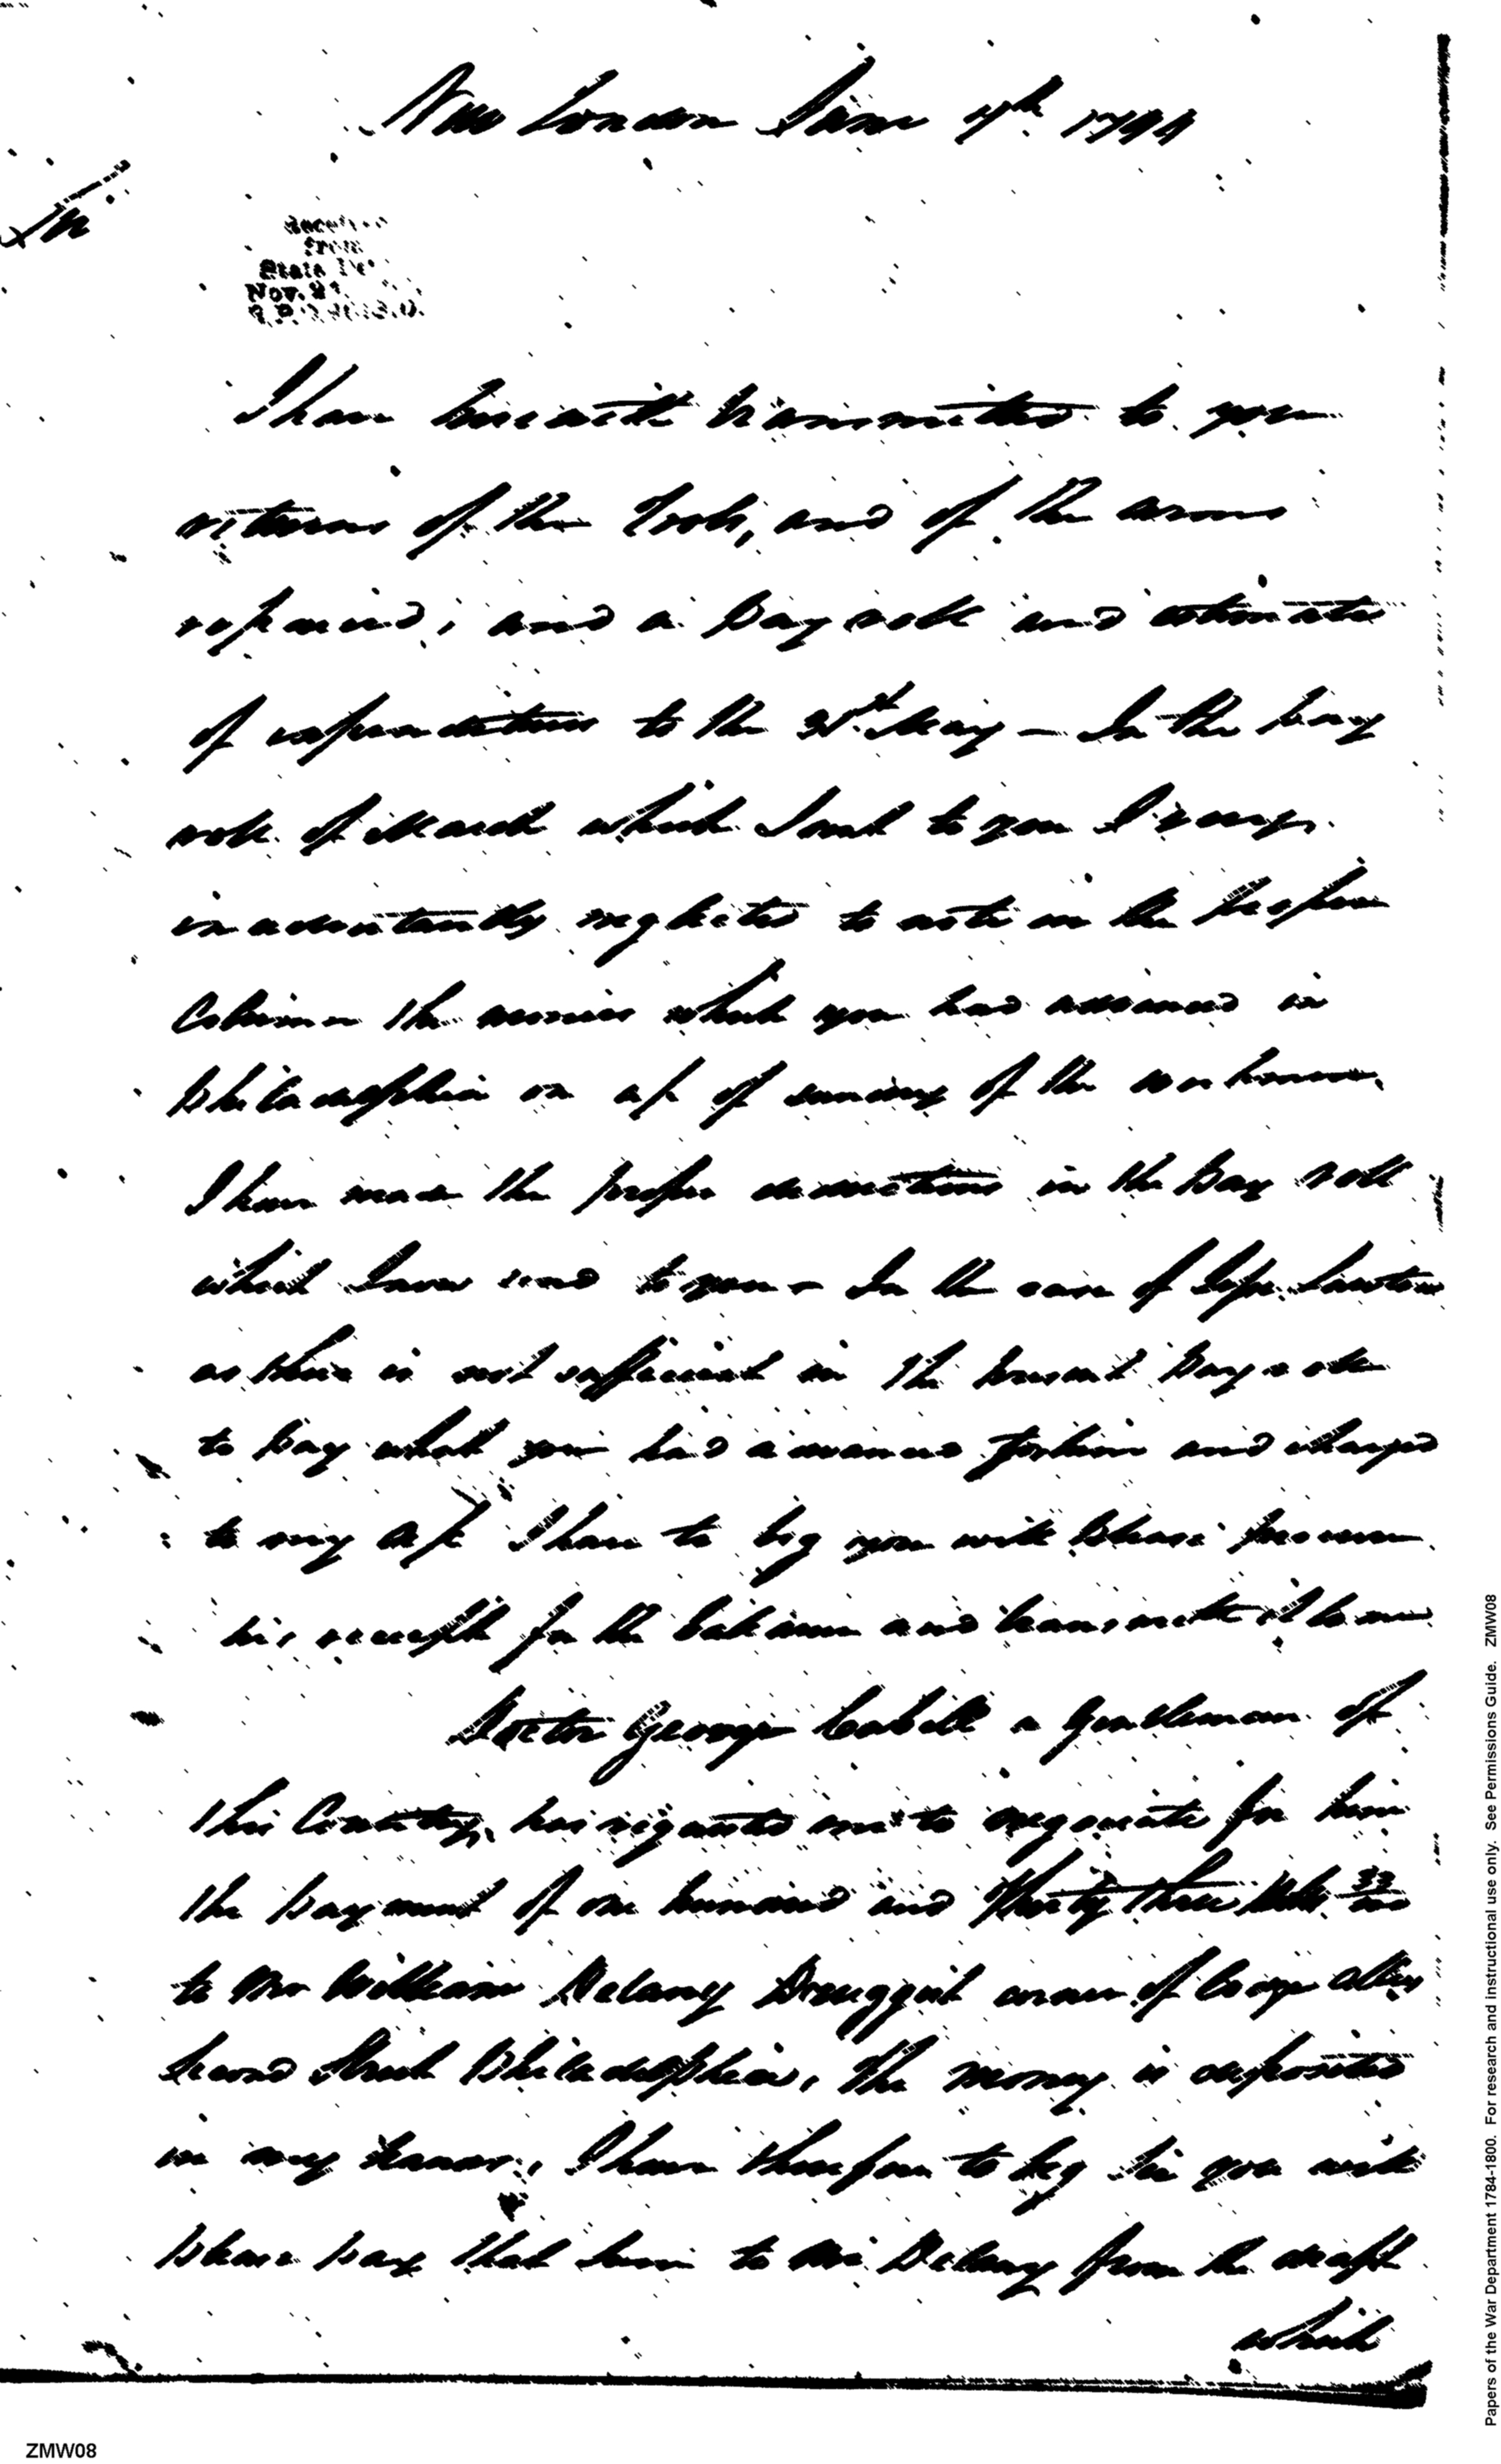 New London June 4th 1794
Sir
from
State
Nov. 21
I have herewith transmitted to you
returns of the Tools, and of the arms
repaired; and a Pay roll and estimate
of expenditures to the 31st May — In the pay
roll of March which I sent to you I very
inadvertantly neglected to note in the proper
Column the monies which you had advanced in
Philadelphia on a/c of sundry of the workmen,
I have made the proper deductions in the Pay roll
which I now send to you — In the case of
as there is not sufficient in the present Pay role
to pay what you had advanced for him and charged
to my a/c I have to beg you will please procure
his receipt for the balance and transmit it to me
Doctor George Cabell a Gentleman of
this County, has requested me to negociate for him
the payment of one hundred and thirty three Dolls. 33/100
to Mr William Delany Druggist corner of alley
Second Street Philadelphia, The money is deposited
in my hands, I have therefore to beg Sir you will
please pay that sum to Mr. Delany from the draft
which
Papers of the War Department 1784-1800. For research and instructional use only. See Permissions Guide. ZMW08
ZMW08